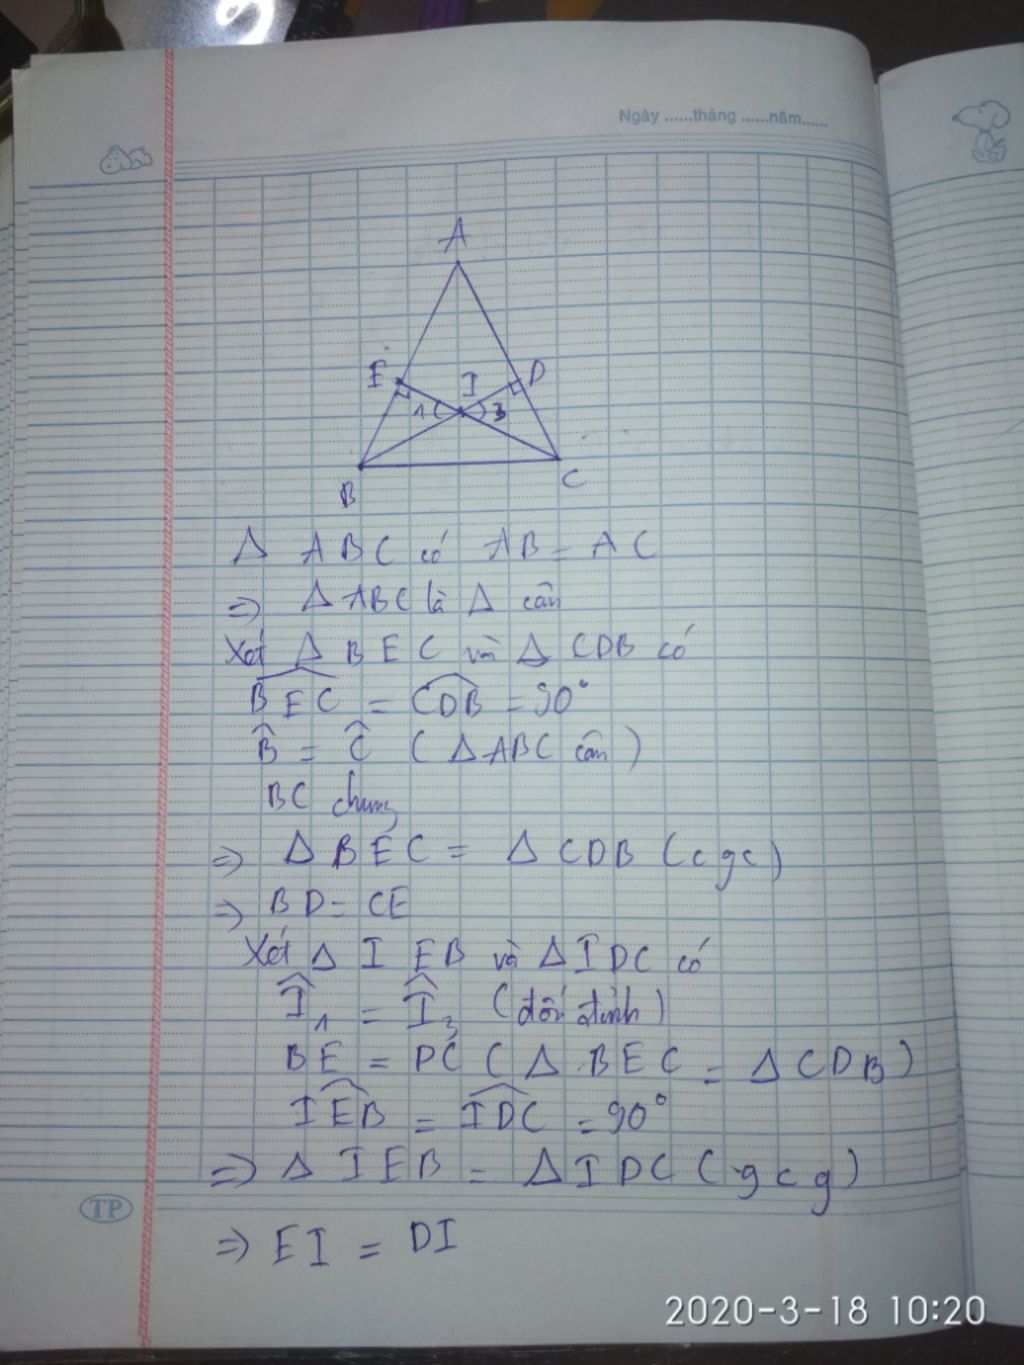 Ngày ......tháng ......năm......
A
E
I
D
1
3
B
C
Δ ABC có AB = AC
=> Δ ABC là Δ cân
Xét Δ BEC và Δ CDB có
BEC = CDB = 90°
B̂ = Ĉ ( Δ ABC cân )
BC chung
=> Δ BEC = Δ CDB (cgc)
=> BD = CE
Xét Δ IEB và Δ IDC có
Î₁ = Î₃ (đối đỉnh)
BE = DC ( Δ BEC = Δ CDB )
IEB = IDC = 90°
=> Δ IEB = Δ IDC (gcg)
=> EI = DI
TP
2020-3-18 10:20